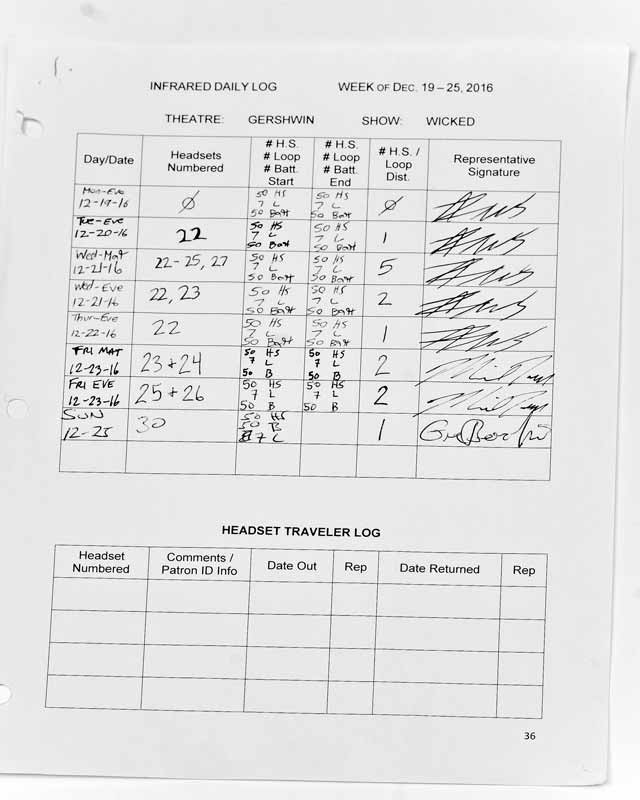 INFRARED DAILY LOG WEEK OF DEC. 19 – 25, 2016
THEATRE: GERSHWIN SHOW: WICKED
Day/Date Headsets Numbered # H.S. # Loop # Batt. Start # H.S. # Loop # Batt. End # H.S. / Loop Dist. Representative Signature
Mon-Eve 12-19-16 Ø 50 HS 7 L 50 Batt 50 HS 7 L 50 Batt Ø
Tue-Eve 12-20-16 22 50 HS 7 L 50 Batt 50 HS 7 L 50 Batt 1
Wed-Mat 12-21-16 22-25, 27 50 HS 7 L 50 Batt 50 HS 7 L 50 Batt 5
Wed-Eve 12-21-16 22, 23 50 HS 7 L 50 Batt 50 HS 7 L 50 Batt 2
Thur-Eve 12-22-16 22 50 HS 7 L 50 Batt 50 HS 7 L 50 Batt 1
FRI MAT 12-23-16 23 + 24 50 HS 7 L 50 B 50 HS 7 L 50 B 2
FRI EVE 12-23-16 25 + 26 50 HS 7 L 50 B 50 HS 7 L 50 B 2
SUN 12-25 30 50 HS 50 B 7 L 1
HEADSET TRAVELER LOG
Headset Numbered Comments / Patron ID Info Date Out Rep Date Returned Rep
36